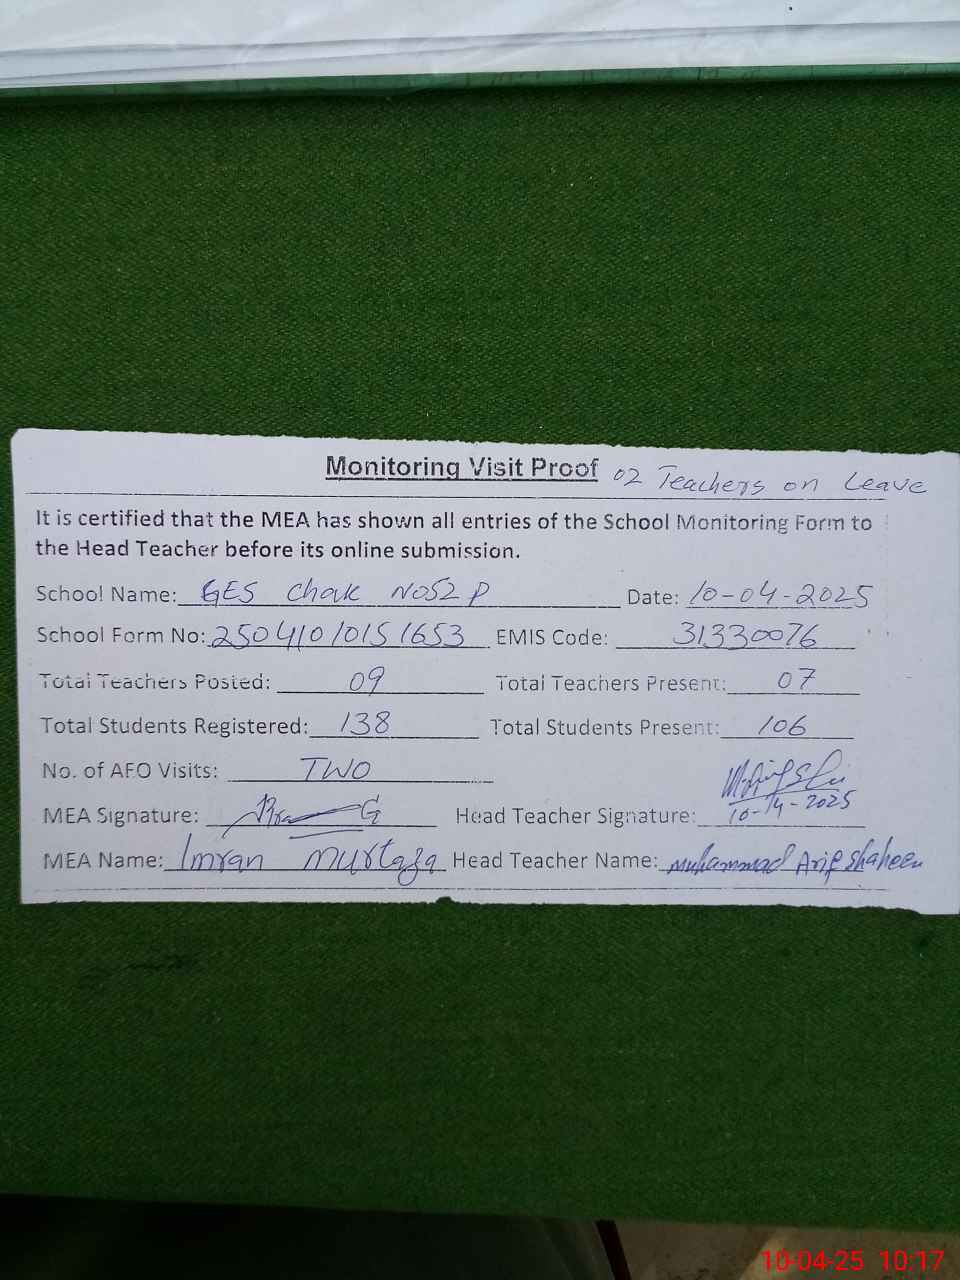 Monitoring Visit Proof 02 Teachers on Leave
It is certified that the MEA has shown all entries of the School Monitoring Form to
the Head Teacher before its online submission.
School Name: GES Chak No52 P Date: 10-04-2025
School Form No: 2504101015 1653 EMIS Code: 31330076
Total Teachers Posted: 09 Total Teachers Present: 07
Total Students Registered: 138 Total Students Present: 106
No. of AEO Visits: TWO
MEA Signature: Head Teacher Signature: 10-14-2025
MEA Name: Imran Murtaza Head Teacher Name: Muhammad Arif Shaheen
10-04-25 10:17